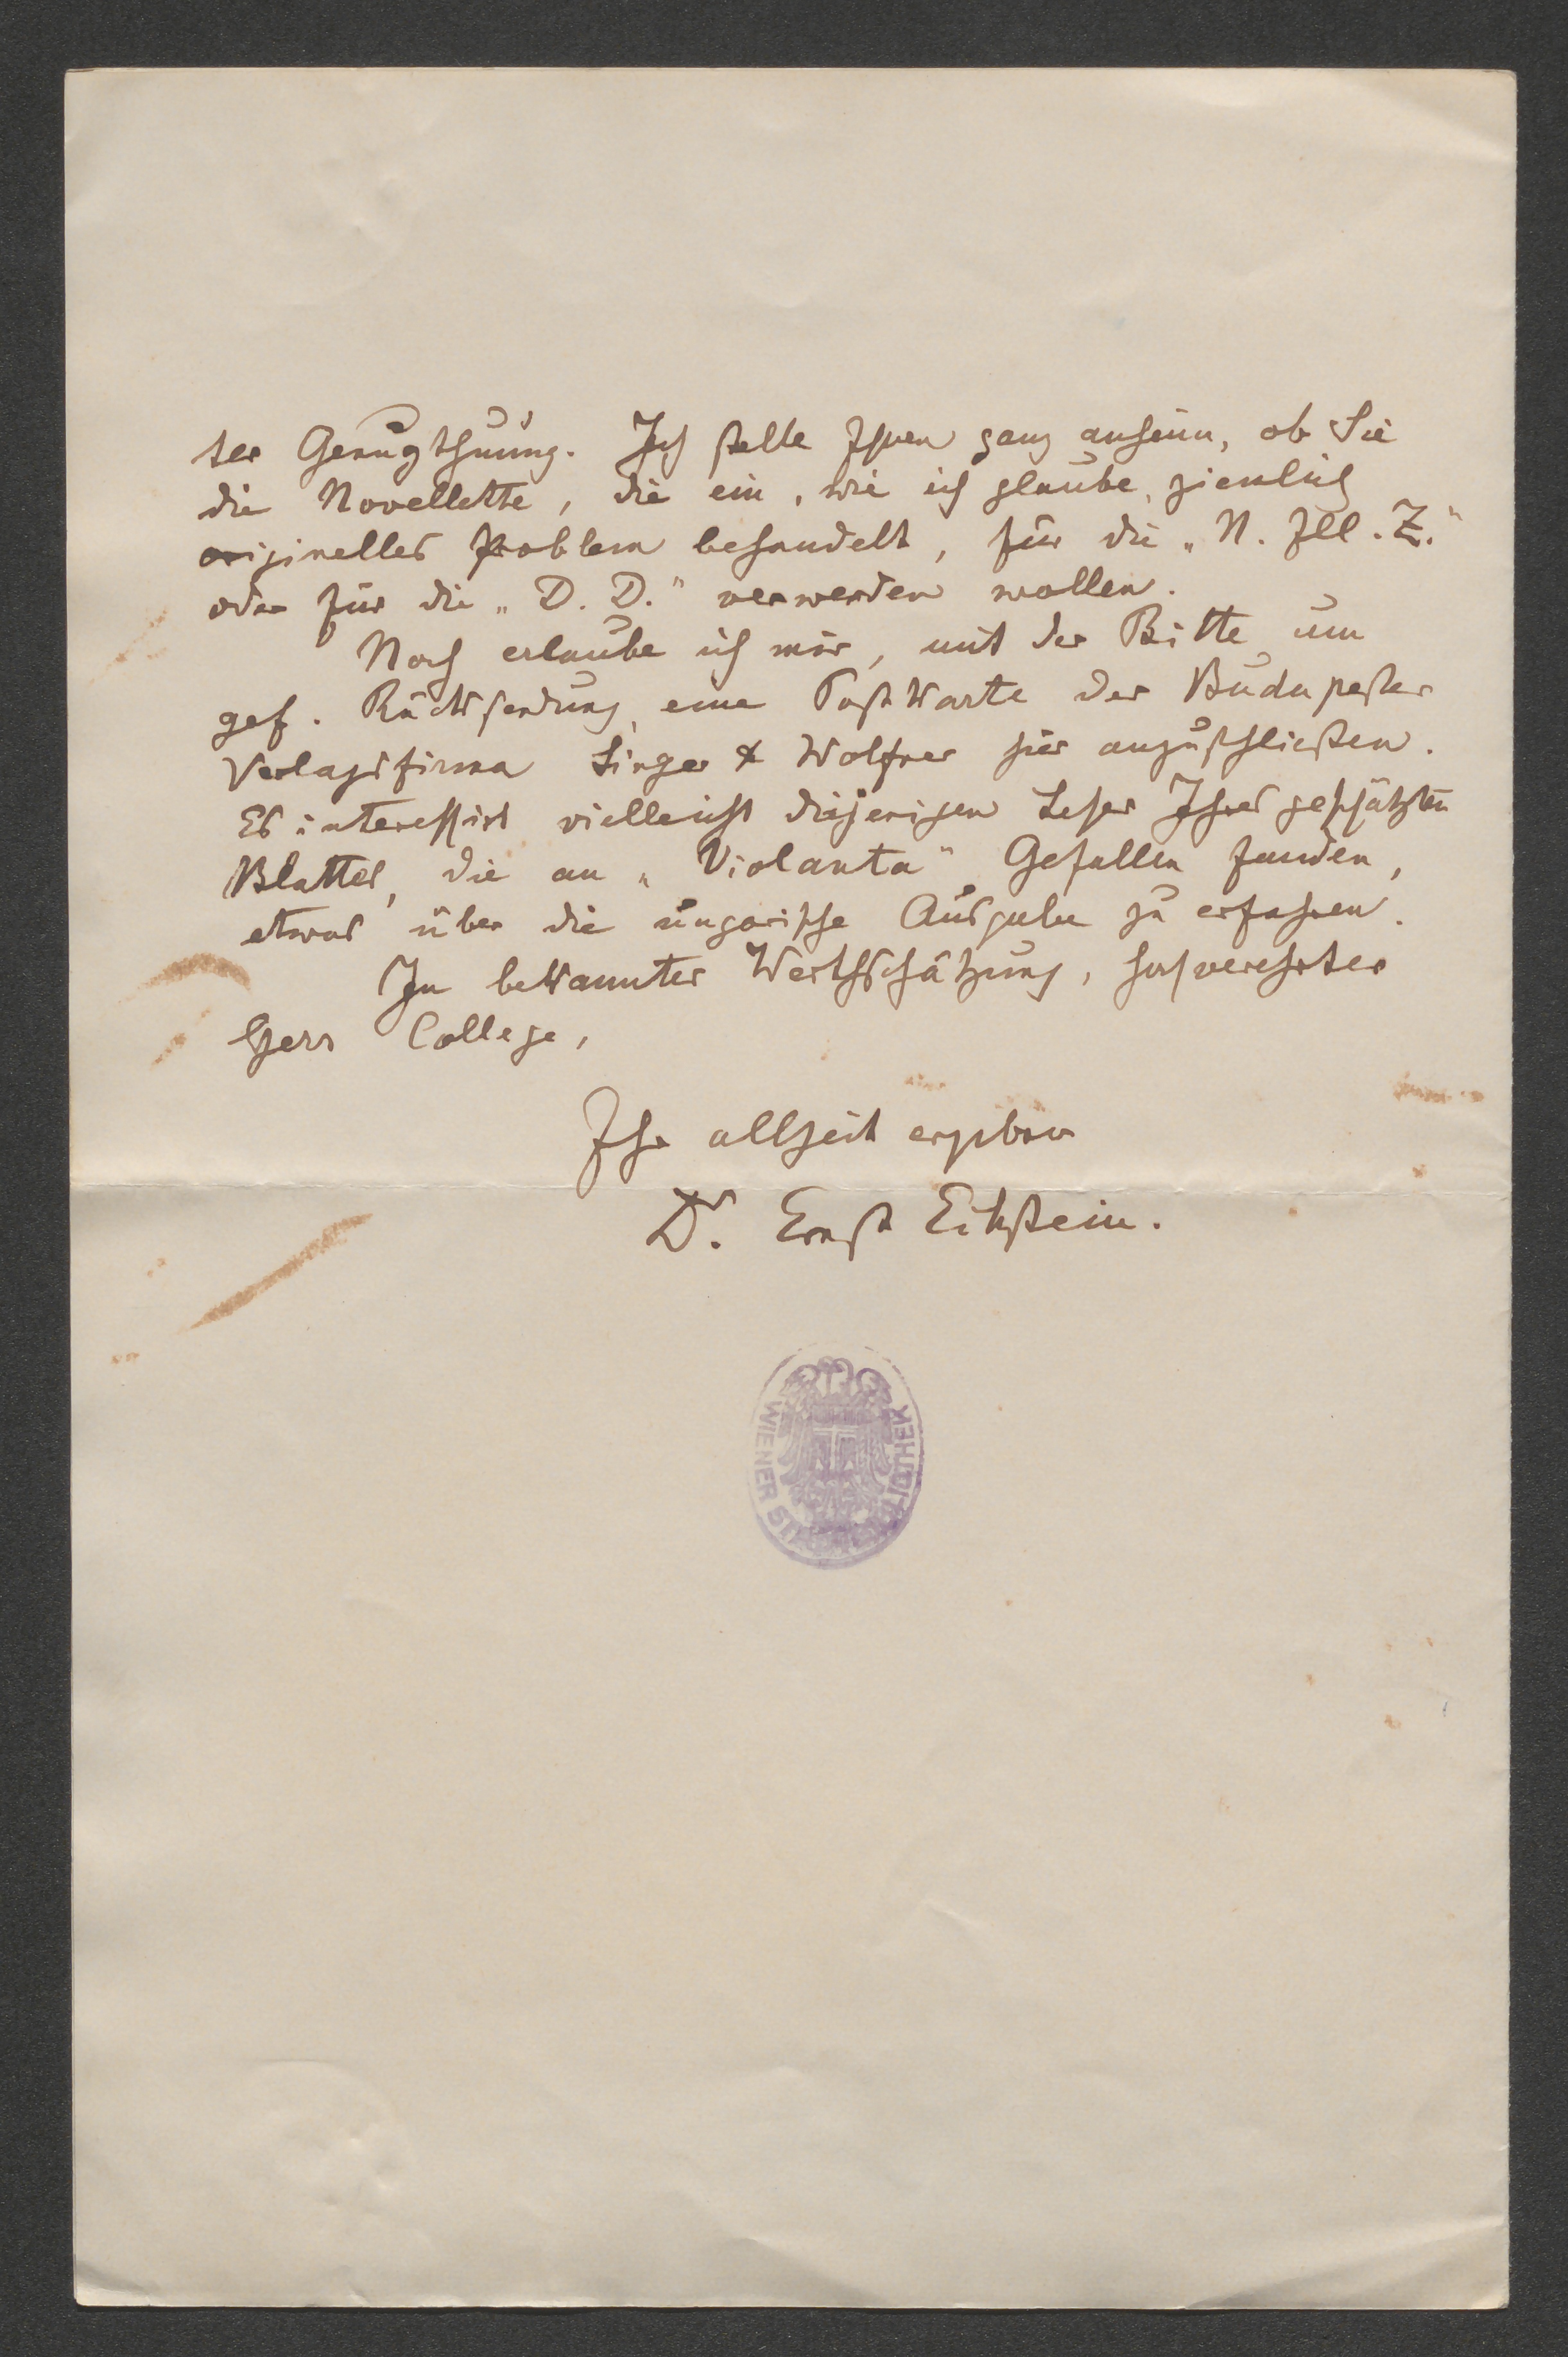 ter Genugthuung. Ich stelle Ihnen ganz anheim, ob Sie
die Novellette, die ein, wie ich glaube, ziemlich
originelles Problem behandelt, für die „N. Ill. Z."
oder für die „D. D." verwenden wollen.
Noch erlaube ich mir, mit der Bitte um
gef. Rücksendung, eine Postkarte der Budapester
Verlagsfirma Singer & Wolfner hier anzuschließen.
Es interessirt vielleicht diejenigen Leser Ihres geschätzten
Blattes, die an „Violanta" Gefallen fanden,
etwas über die ungarische Ausgabe zu erfahren.
In bekannter Werthschätzung, hochverehrter
Herr College,
Ihr allzeit ergebener
Dr. Ernst Eckstein.
WIENER STADTBIBLIOTHEK